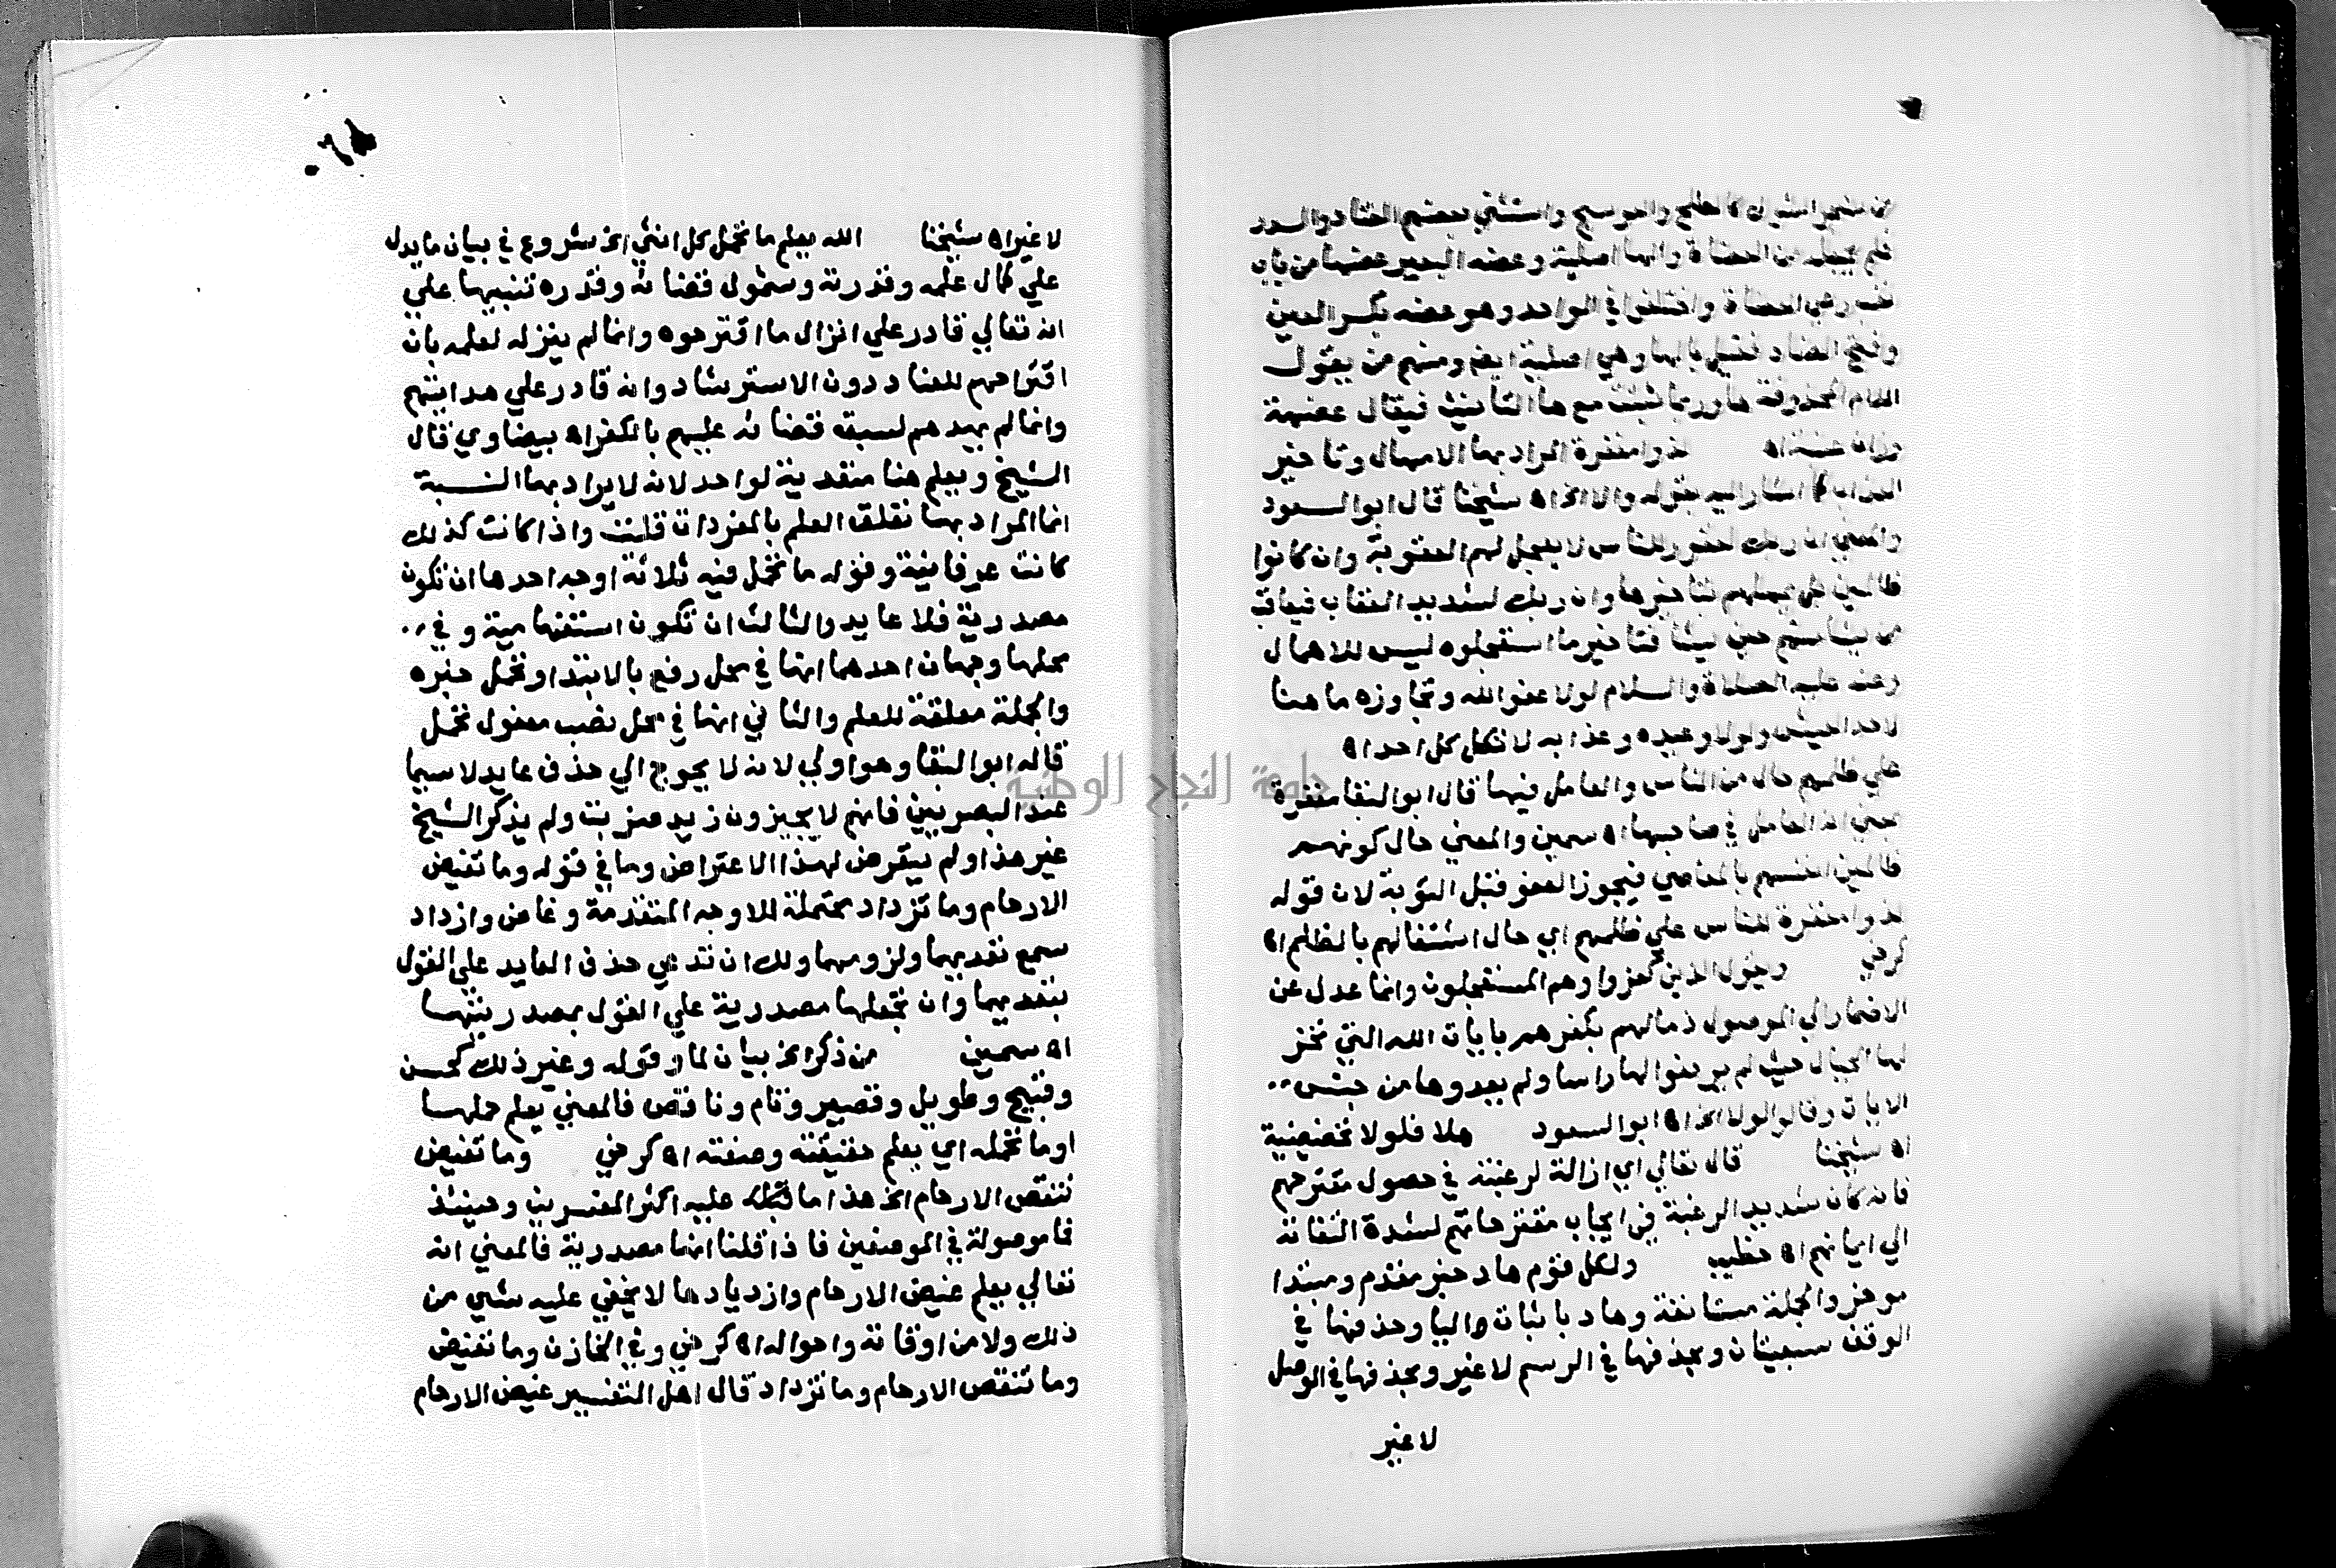 من شجر الشوك كالطلح والعوسج واستثنى بعضهم القتاد والسدر
فلم يجعله من العضاة والها اصلية وعضه البعير عضها من باب
تعب رعي العضاة واختلفوا في الواحد وهو عضه بكسر العين
وفتح الضاد فقيل بالها وهي اصلية ايض ومنهم من يقول
اللام المحذوفة ها وربما ثبتت مع ها التانيث فيقال عضهة
وزان عنبة اه لذوا مغفرة المراد بها الامهال وتاخير
العذاب كما اشار اليه بقوله والا الخ اه شيخنا قال ابو السعود
والمعني ان ربك لغفور للناس لا يعجل لهم العقوبة وان كانوا
ظالمين بل يمهلهم بتاخيرها وان ربك لشديد العقاب فيعاقب
من يشا منهم حين يشا فتاخير ما استعجلوه ليس للاهمال
وعنه عليه الصلاة والسلام لولا عفو الله وتجاوزه ما هنا
لاحد العيش ولولا وعيده وعذابه لاتكل كل احد اه
علي ظلمهم حال من الناس والعامل فيها قال ابو البقا مغفرة
يعني انه العامل في صاحبها اه سمين والمعني حال كونهم
ظالمين انفسهم بالمعاصي فيجوز العفو قبل التوبة لان قوله
لذوا مغفرة للناس علي ظلمهم اي حال اشتغالهم بالظلم اه
كرخي ويقول الذين كفروا وهم المستعجلون وانما عدل عن
الاضمار الي الموصول ذما لهم بكفرهم بايات الله التي تخر
لها الجبال حيث لم يرفعوا لها راسا ولم يعدوها من جنس
الايات وقالوا لولا الخ اه ابو السعود هلا فلولا تحضيضية
اه شيخنا قال تعالي اي ازالة لرغبته في حصول مقترحهم
فانه كان شديد الرغبة في ايجاب مقترحاتهم لشدة التفاته
الي ايمانهم اه خطيب ولكل قوم هاد خبر مقدم ومبتدا
موخر والجملة مستانفة وهاد باثبات اليا وحذفها في
الوقف سبعيتان وبحذفها في الرسم لا غير وبحذفها في الوصل
لا غير
لا غير اه شيخنا الله يعلم ما تحمل كل انثي الخ شروع في بيان ما يدل
علي كمال علمه وقدرته وشمول قضائه وقدره تنبيها علي
انه تعالي قادر علي انزال ما اقترحوه وانما لم ينزله لعلمه بان
اقتراحهم للعناد دون الاسترشاد وانه قادر علي هدايتهم
وانما لم يهدهم لسبقه قضائه عليهم بالكفر اه بيضاوي قال
الشيخ ويعلم هنا متعدية لواحد لانه لا يراد بها النسبة
انما المراد بها تعلق العلم بالمفردات قلت واذا كانت كذلك
كانت عرفانية وقوله ما تحمل فيه ثلاثة اوجه احدها ان تكون
مصدرية فلا عايد والثالث ان تكون استفهامية وفي
محلها وجهان احدهما انها في محل رفع بالابتدا وتحمل خبره
والجملة معلقة للعلم والثاني انها في محل نصب مفعول تحمل
قاله ابو البقا وهو اولي لانه لا يحوج الي حذف عايد لا سيما
عند البصريين فانهم لا يجيزون زيد ضربت ولم يذكر الشيخ
غير هذا ولم يتعرض لهذا الاعتراض وما في قوله وما تغيض
الارحام وما تزداد محتملة للاوجه المتقدمة وغاض وازداد
سمع تعديهما ولزومهما ولك ان تدعي حذف العايد علي القول
بتعديهما وان تجعلها مصدرية علي القول بمصدريتها
اه سمين من ذكر الخ بيان لما وقوله وغير ذلك كحسن
وقبيح وطويل وقصير وتام وناقص فالمعني يعلم حملها
او ما تحمله اي يعلم حقيقته وصفته اه كرخي وما تغيض
تنقص الارحام الخ هذا ما عليه اكثر المفسرين وحينئذ
فما موصولة في الموضعين فاذا قلنا انها مصدرية فالمعني انه
تعالي يعلم غيض الارحام وازديادها لا يخفي عليه شي من
ذلك ولا من اوقاته واحواله اه كرخي وفي الخازن وما تغيض
وما تنقص الارحام وما تزداد قال اهل التفسير غيض الارحام
جامعة النجاح الوطنية